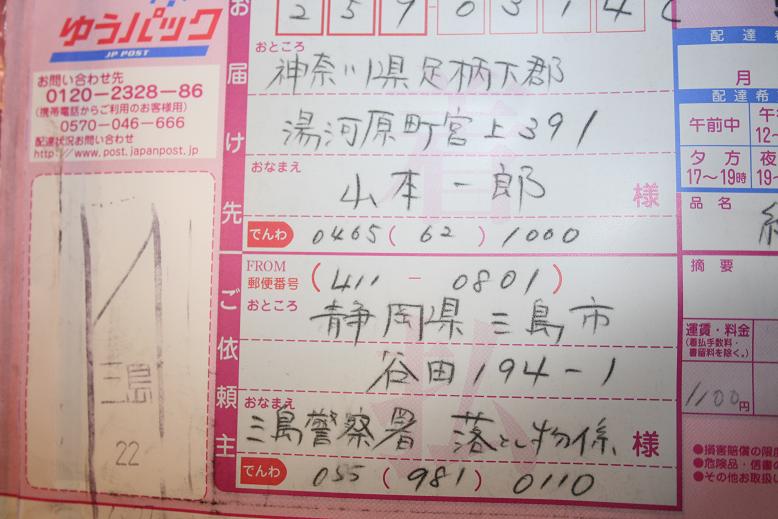 ゆうパック
JP POST
お問い合わせ先
0120-2328-86
(携帯電話からご利用のお客様用)
0570-046-666
配達状況お問い合わせ
http://www.post.japanpost.jp
三島
22
お届け先
259-0314
おところ
神奈川県足柄下郡
湯河原町宮上391
おなまえ
山本一郎 様
でんわ 0465(62)1000
ご依頼主
FROM
郵便番号 (411-0801)
おところ
静岡県三島市
谷田194-1
おなまえ
三島警察署 落とし物係 様
でんわ 055(981)0110
着払
配達希
月
配達希
午前中
12~
夕方
17~19時
夜
19~
品名
摘要
運賃・料金
(着払手数料・
書留料を除く。)
1100円
●損害賠償の限度
●危険品・信書の
●その他お取扱い